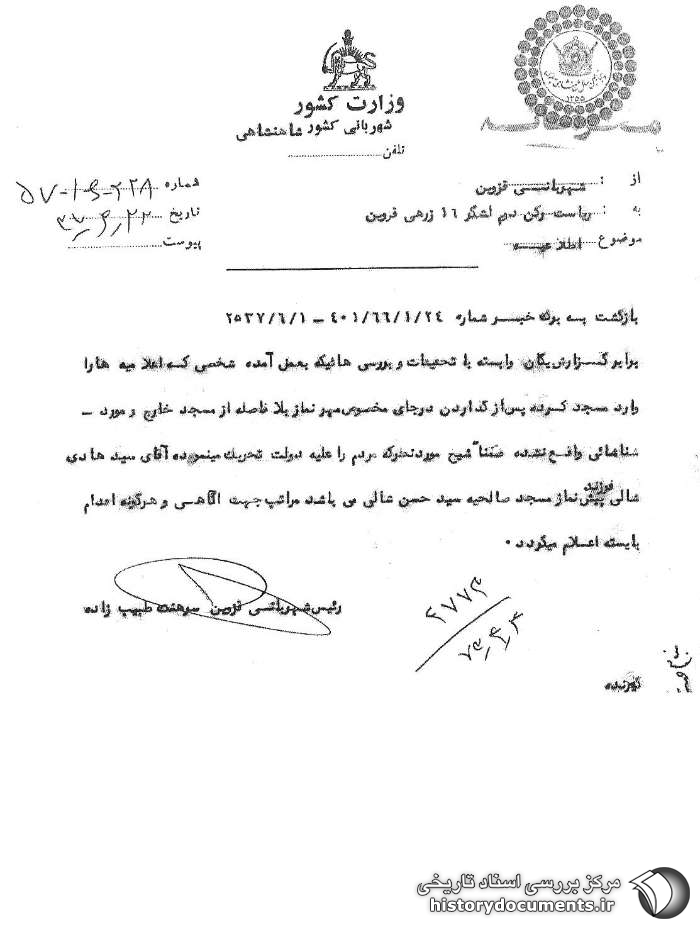 وزارت کشور
شهربانی کشور شاهنشاهی
تلفن
محرمانه
از : شهربانی قزوین
به : ریاست رکن دوم لشگر ۱۶ زرهی قزوین
موضوع : اعلامیه
شماره
تاریخ
پیوست
بازگشت به برگ خبر شماره ۴۰۱/۶۶/۱/۲۴ – ۲۵۳۷/۶/۱
برابر گزارش یگان وابسته با تحقیقات و بررسی هائیکه بعمل آمده شخصی که اعلامیه ها را
وارد مسجد کرده پس از گذاردن در جای مخصوص مهر نماز بلا فاصله از مسجد خارج و مورد –
شناسائی واقع نشده ضمناً شیخ مورد نظر که مردم را علیه دولت تحریک مینموده آقای سید هادی
شالی پیش نماز مسجد صالحیه فرزند سید حسن شالی می باشد مراتب جهت آگاهی و هرگونه اقدام
بایسته اعلام میگردد .
رئیس شهربانی قزوین سرهنگ طبیب زاده
۲۷۷۳
گیرنده
مرکز بررسی اسناد تاریخی
historydocuments.ir